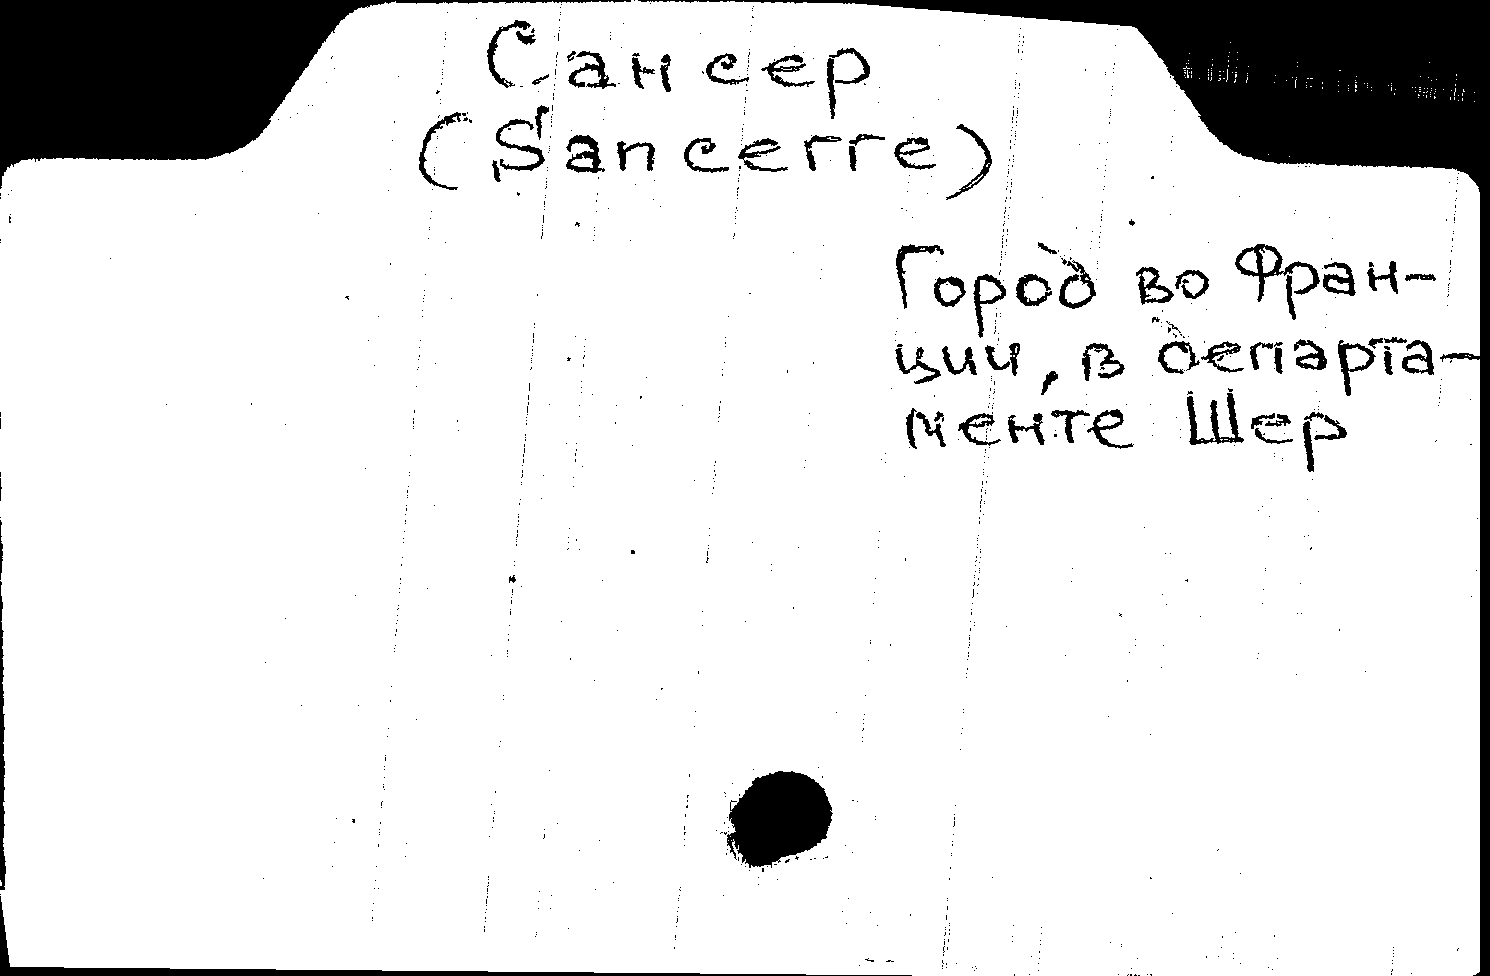 Сансер
(Sancerre)
Город во Фран-
ции, в департа-
менте Шер